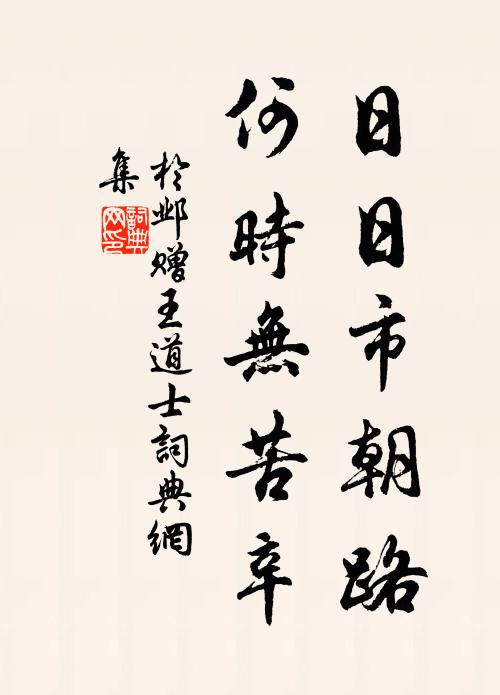 日日市朝路
何時無苦辛
於鄴贈王道士詞典網
集
詞典
网印